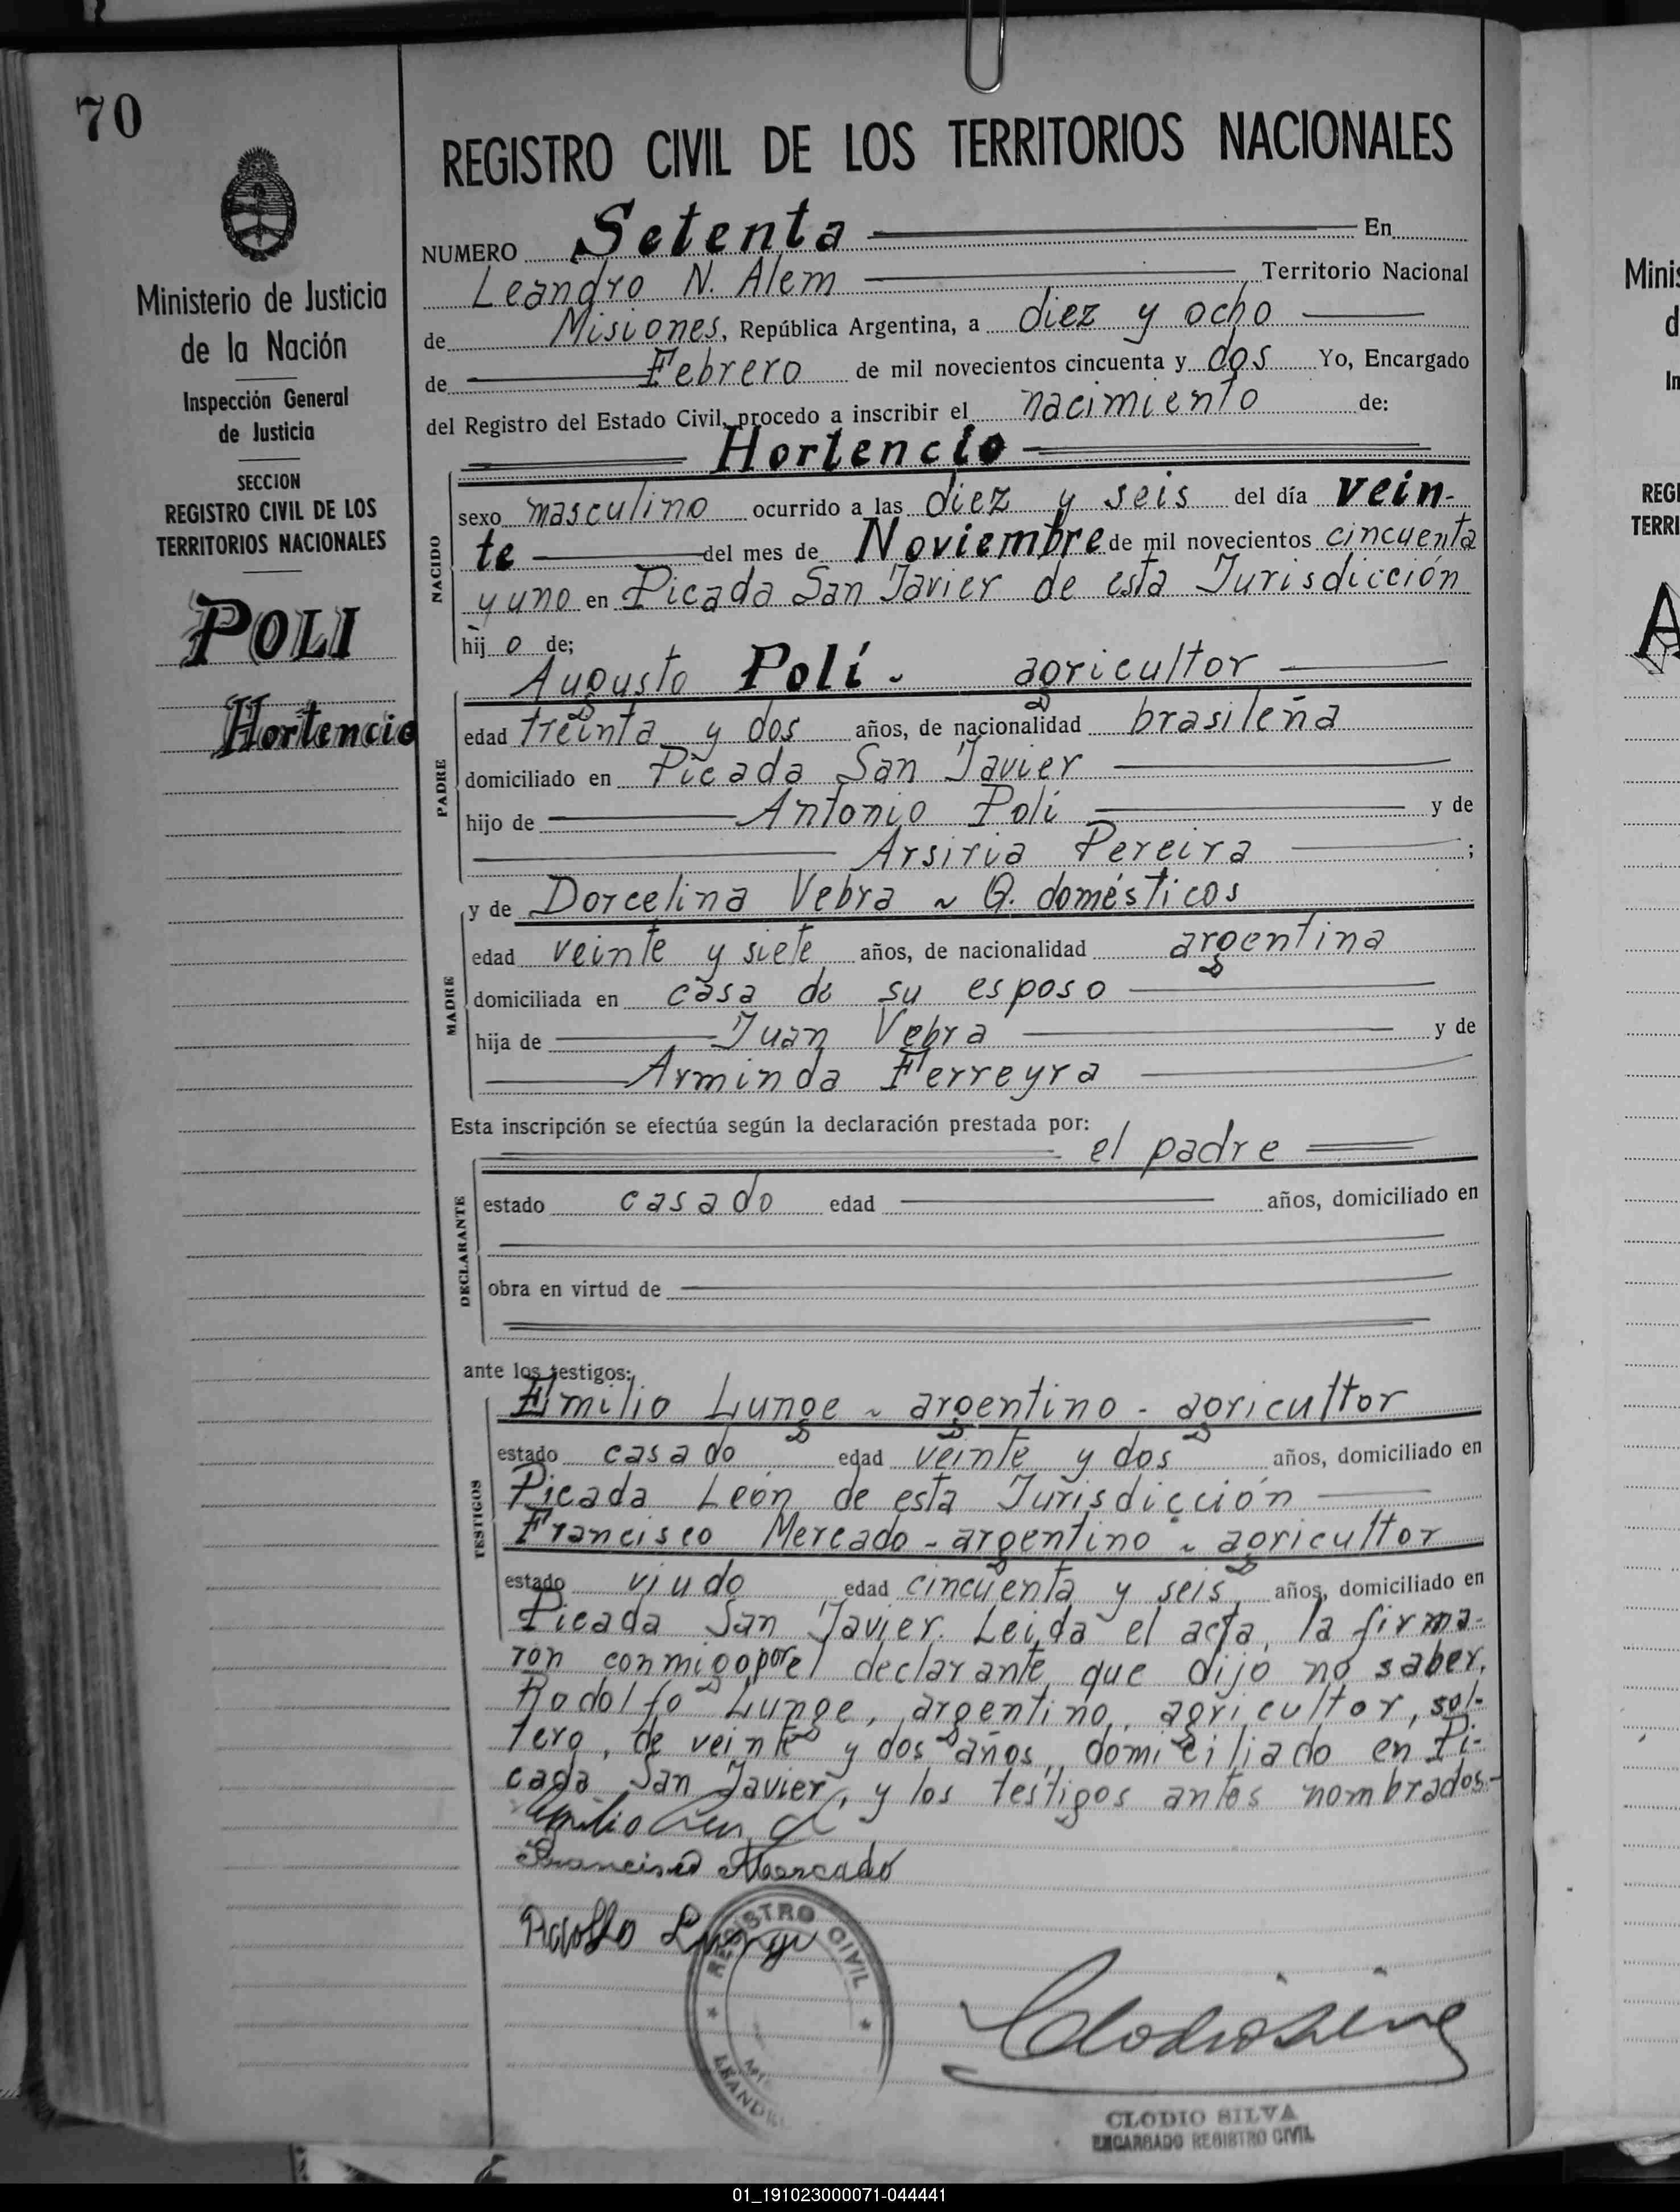 70
Ministerio de Justicia
de la Nación
Inspección General
de Justicia
SECCION
REGISTRO CIVIL DE LOS
TERRITORIOS NACIONALES
POLI
Hortencio
REGISTRO CIVIL DE LOS TERRITORIOS NACIONALES
NUMERO Setenta En
Leandro N. Alem Territorio Nacional
de Misiones, República Argentina, a diez y ocho
de Febrero de mil novecientos cincuenta y dos Yo, Encargado
del Registro del Estado Civil, procedo a inscribir el nacimiento de:
Hortencio
NACIDO
sexo masculino ocurrido a las diez y seis del día vein-
te del mes de Noviembre de mil novecientos cincuenta
y uno en Picada San Javier de esta Jurisdicción
hij o de;
Augusto Poli. agricultor
PADRE
edad treinta y dos años, de nacionalidad brasileña
domiciliado en Picada San Javier
hijo de Antonio Poli y de
Arsiria Pereira ;
y de Dorcelina Vebra ~ Q. domésticos
MADRE
edad veinte y siete años, de nacionalidad argentina
domiciliada en casa de su esposo
hija de Juan Vebra y de
Arminda Ferreyra
Esta inscripción se efectúa según la declaración prestada por:
el padre
DECLARANTE
estado casado edad años, domiciliado en
obra en virtud de
ante los testigos:
TESTIGOS
Emilio Lunge ~ argentino - agricultor
estado casado edad veinte y dos años, domiciliado en
Picada León de esta Jurisdicción
Francisco Mercado - argentino ~ agricultor
estado viudo edad cincuenta y seis años, domiciliado en
Picada San Javier. Leida el acta, la firma-
ron conmigo por el declarante que dijo no saber,
Rodolfo Lunge, argentino, agricultor, sol-
tero, de veinte y dos años, domiciliado en Pi-
cada San Javier, y los testigos antes nombrados.-
Francisco Mercado
Rodolfo Lunge
REGISTRO CIVIL
LEANDR
Clodio Silva
CLODIO SILVA
ENCARGADO REGISTRO CIVIL
Minis
d
In
REGI
TERRI
A
01_191023000071-044441